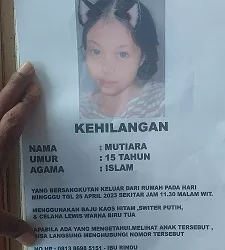 KEHILANGAN
NAMA : MUTIARA
UMUR : 15 TAHUN
AGAMA : ISLAM
YANG BERSANGKUTAN KELUAR DARI RUMAH PADA HARI
MINGGGU TGL 25 APRIL 2023 SEKITAR JAM 11.30 MALAM WIT.
MENGGUNAKAN BAJU KAOS HITAM ,SWITER PUTIH,
& CELANA LEWIS WARNA BIRU TUA
APABILA ADA YANG MENGETAHUI,MELIHAT ANAK TERSEBUT ,
BISA LANGSUNG MENGHUBUNGI NOMOR TERSEBUT
NO HP : 0813 8698 5151 -IBU RINDU